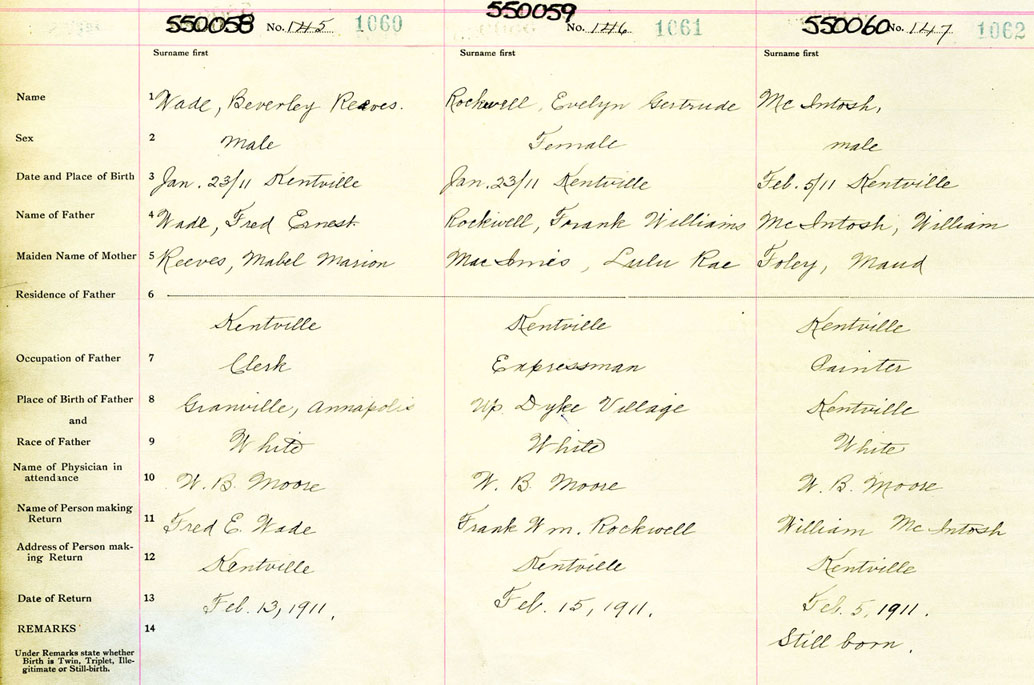 550058 No. 145 1060 550059 No. 146 1061 550060 No. 147 1062
Surname first Surname first Surname first
Name 1 Wade, Beverley Reeves. Rockwell, Evelyn Gertrude Mc Intosh,
Sex 2 Male Female male
Date and Place of Birth 3 Jan. 23/11 Kentville Jan. 23/11 Kentville Feb. 5/11 Kentville
Name of Father 4 Wade, Fred Ernest. Rockwell, Frank Williams Mc Intosh, William
Maiden Name of Mother 5 Reeves, Mabel Marion Mac Innis, Lulu Rae Foley, Maud
Residence of Father 6
Kentville Kentville Kentville
Occupation of Father 7 Clerk Expressman Painter
Place of Birth of Father 8 Granville, Annapolis Up. Dyke Village Kentville
and
Race of Father 9 White White White
Name of Physician in
attendance 10 W. B. Moore W. B. Moore W. B. Moore
Name of Person making
Return 11 Fred E. Wade Frank Wm. Rockwell William Mc Intosh
Address of Person mak-
ing Return 12 Kentville Kentville Kentville
Date of Return 13 Feb. 13, 1911. Feb. 15, 1911. Feb. 5, 1911.
REMARKS 14 Still born.
Under Remarks state whether
Birth is Twin, Triplet, Ille-
gitimate or Still-birth.